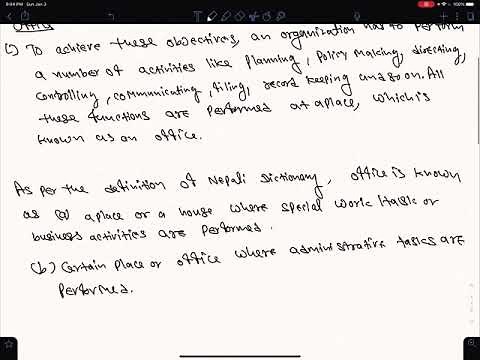 9:34 PM Sun Jan 3
100%
Office
(i) To achieve these objectives, an organization has to perform
a number of activities like planning, policy making, directing,
controlling, communicating, filing, record keeping and so on. All
these functions are performed at a place, which is
known as an office.
As per the definition of Nepali Dictionary, office is known
as (a) a place or a house where special work/task or
business activities are performed.
(b) Certain place or office where administrative tasks are
performed.